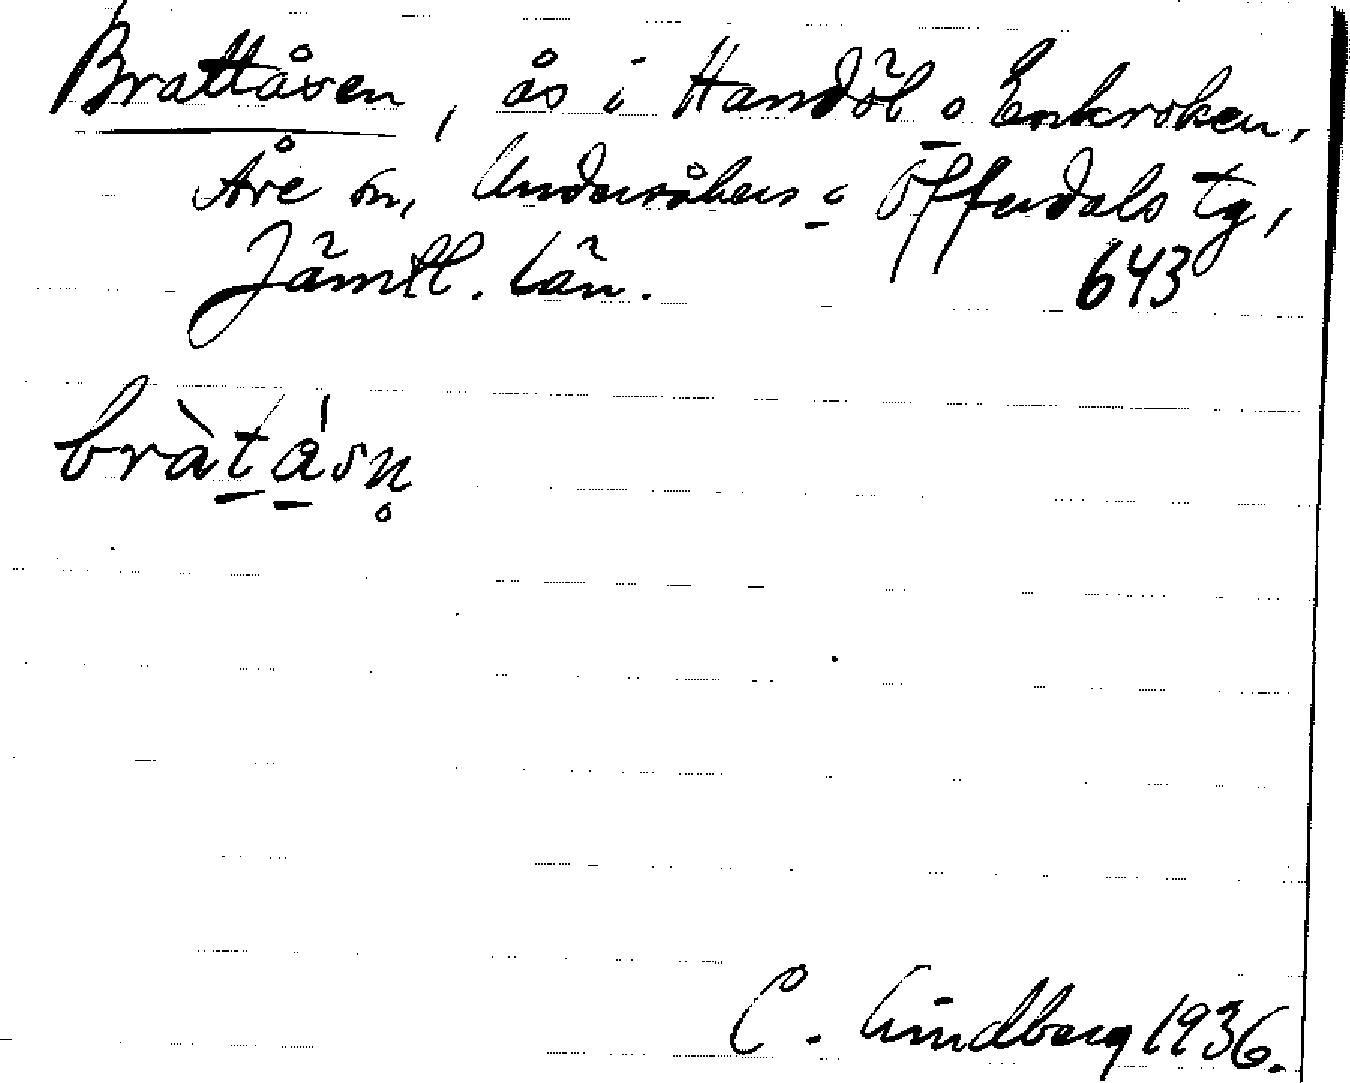 Brattåsen, ås i Handöl o Enkroken,
Åre sn, Undersåkers o Offerdals tg,
Jämtl. län. 643
bràtá̱sn̥
C. Lindberg 1936.